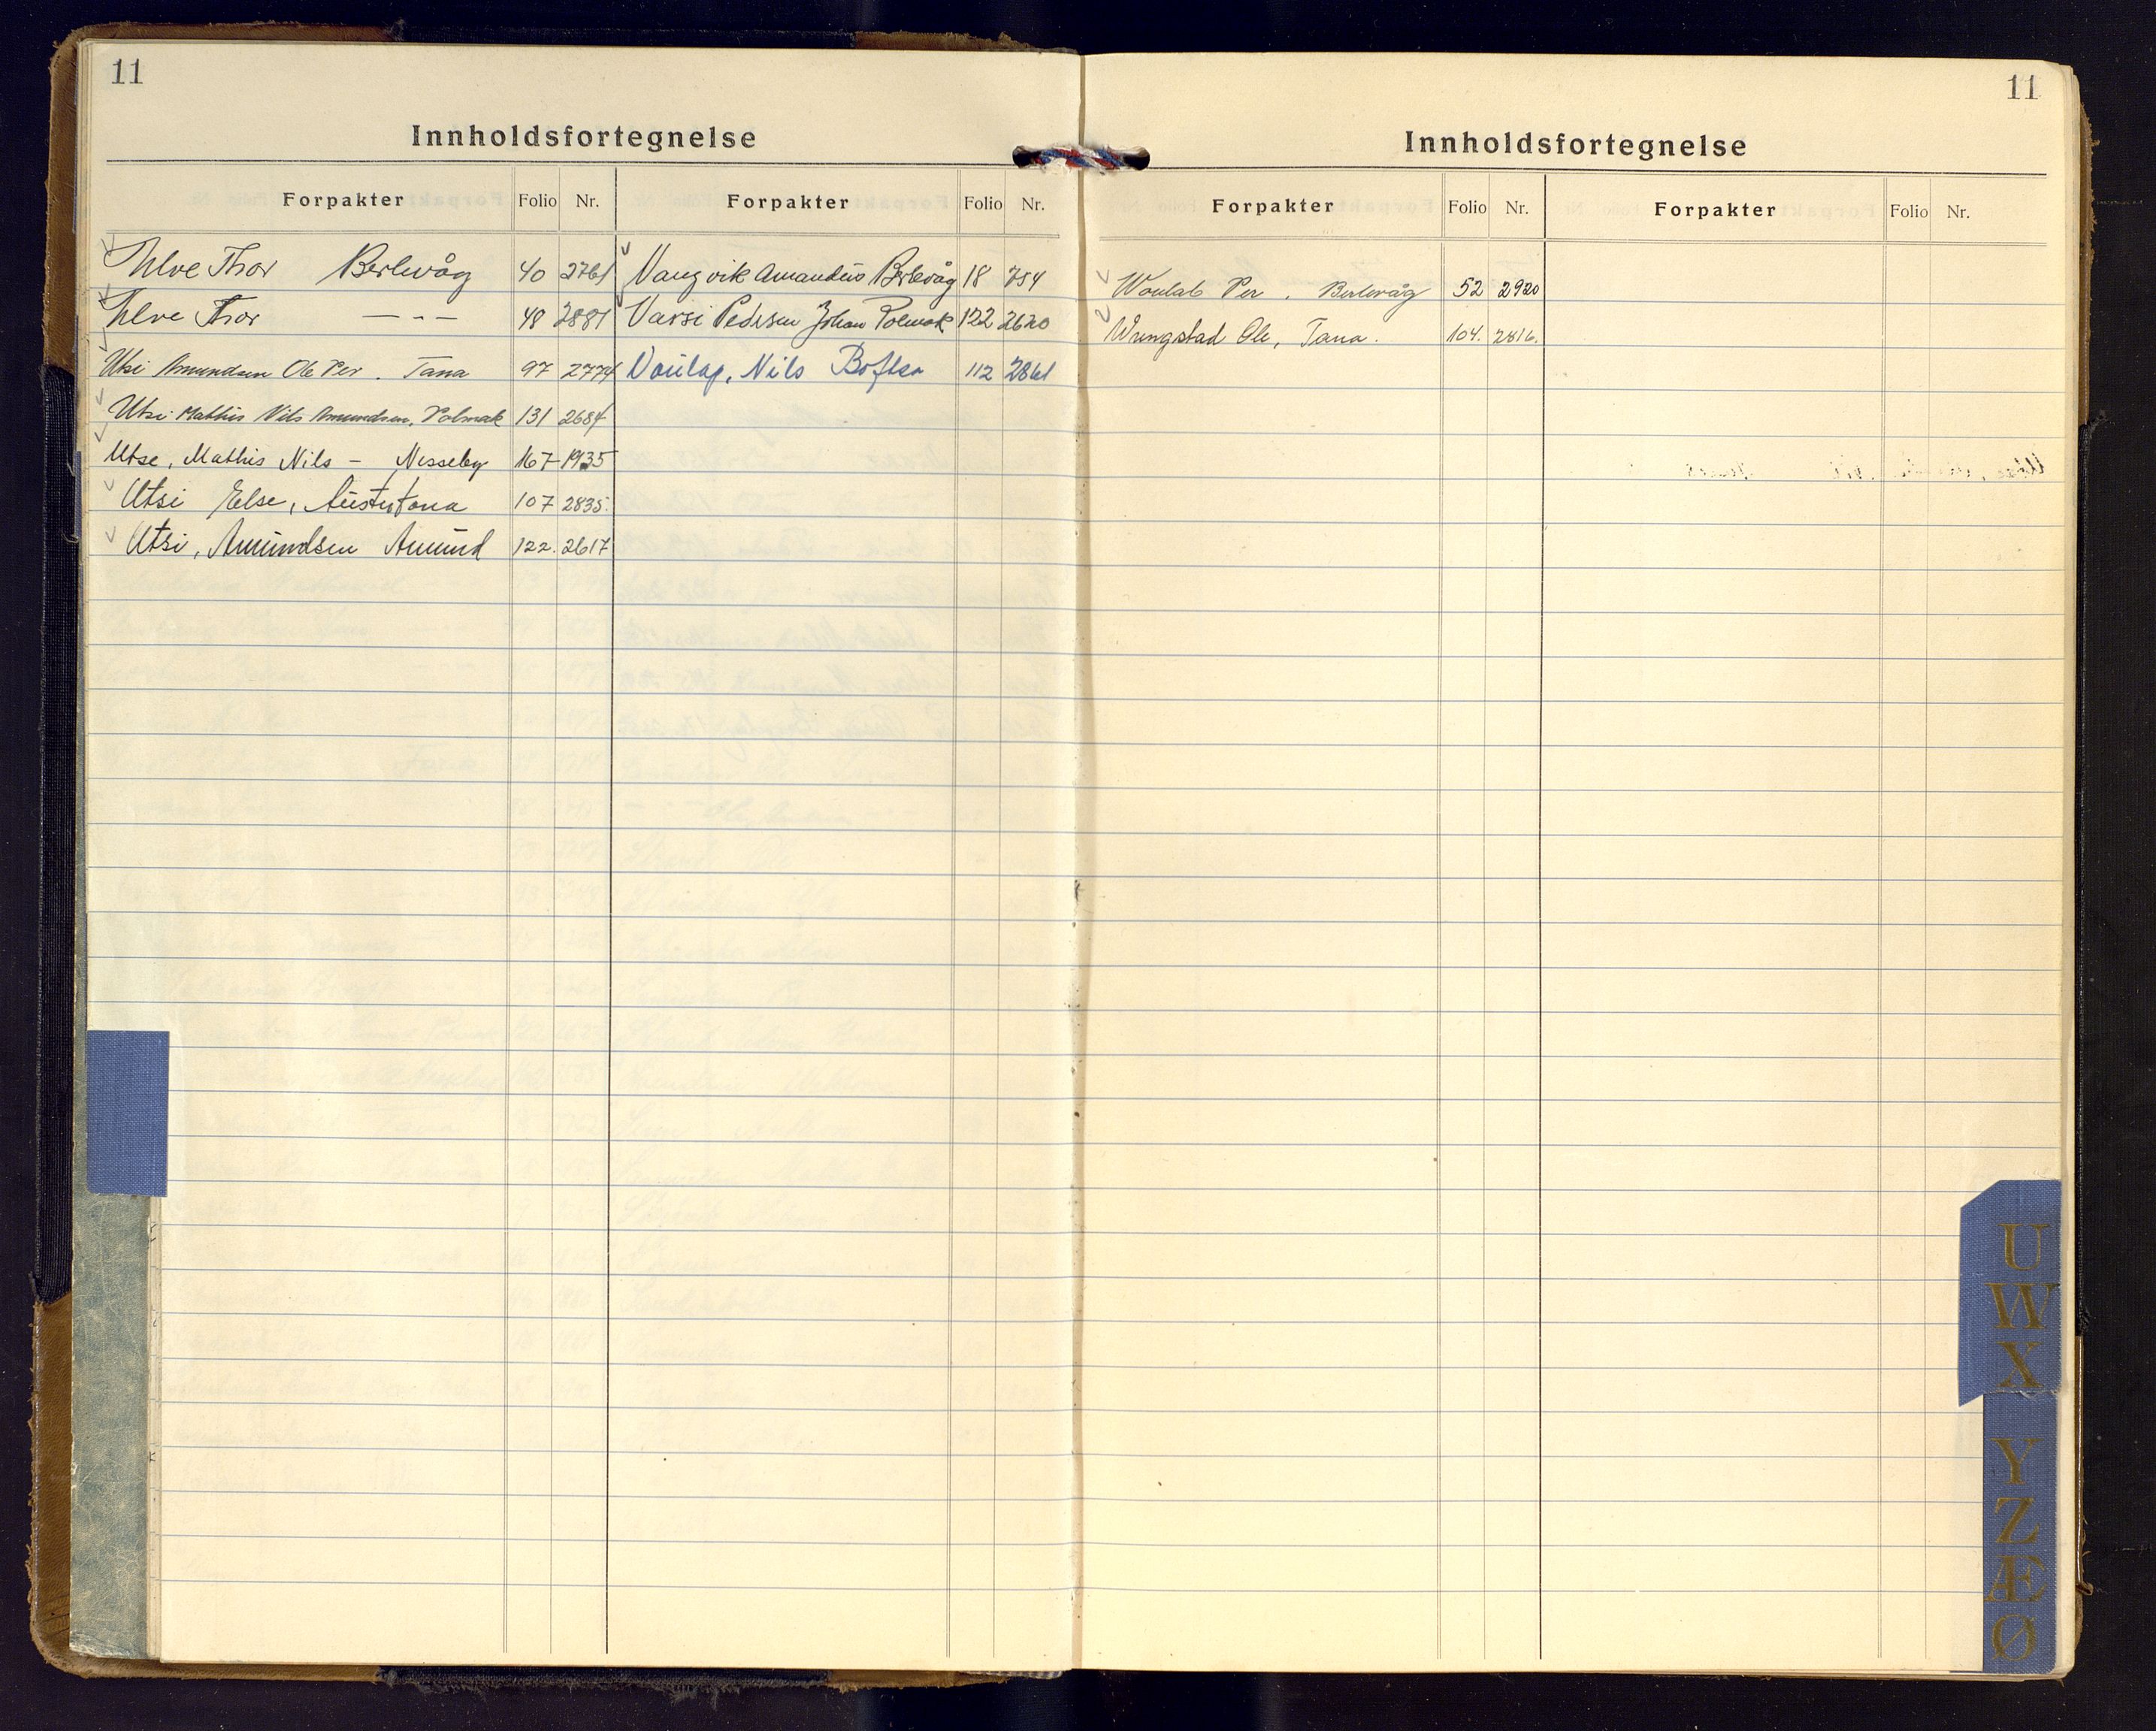 11
Innholdsfortegnelse
Forpakter Folio Nr. Forpakter Folio Nr.
Ulve Thor Berlevåg 40 2761
Ulve Thor — " — 48 2881
Utsi Amundsen Ole Per. Tana 97 2774
Utsi Mathis Nils Amundsen, Polmak 131 2684
Utse, Mathis Nils - Nesseby 167 1935
Utsi Else, Austertana 107 2835.
Utsi, Amundsen Amund 122. 2617
Vangvik Amandus Berlevåg 18 754
Varsi Pedersen Johan Polmak 122 2620
Voulap, Nils Boftsa 112 2861
11
Innholdsfortegnelse
Forpakter Folio Nr. Forpakter Folio Nr.
Woulab Per. Berlevåg 52 2920
Wrengstad Ole, Tana. 104. 2816.
U
W
X
Y
Z
Æ
Ø